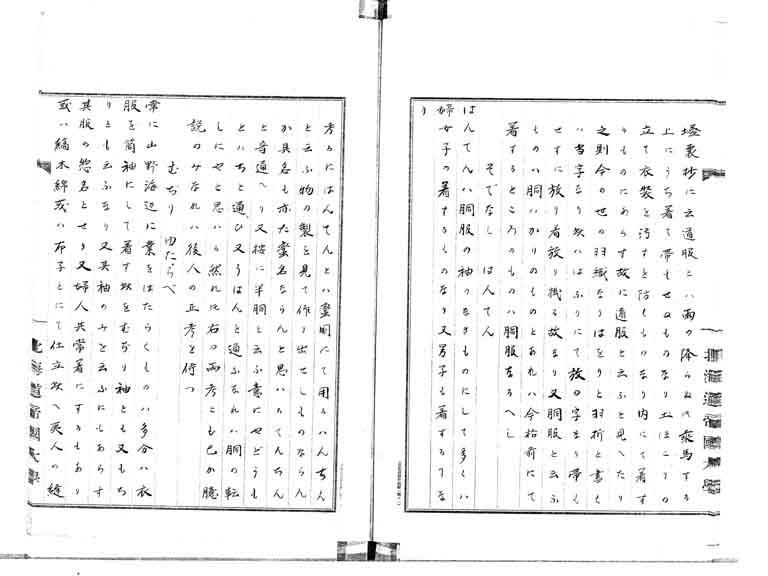 壒嚢抄に云道服とハ雨の降らぬ時乗馬する
上にうち着て帯もせぬものなり土ほこりの
立て衣裳を汚すを防くものなり内にて着す
るものにあらす故に道服と云ふと見へたり
之則今の世の羽織なりはをりと羽折と書く
ハ当字なり此ハはふりにて放の字なり帯も
せすに放り着放り掛る故なり又胴服と云ふ
ものハ胴ハかりのものとあれハ今袷前にて
着するところのものハ胴服なるへし
そでなし はんてん
はんてんハ胴服の袖のなきものにして多くハ
婦女子の着するものなり又男子も着するもな
り
考るにはんてんとハ蛮国にて用るハんちん
と云ふ物の製を見て作り出せしものならん
か具名も亦た蛮名ならんと思ハるてんちん
と音通へり又按に半胴と云ふ意にやどうも
とハちと通ひ又うはんと通ふなれハ胴の転
しにやと思ハる然れ圧右の両考とも己か臆
説のみなれハ後人の正考を待つ
むぢり ゆたらべ
常に山野海辺に業をはたらくものハ多分ハ衣
服を筒袖にして着す此をむぢり袖とも又もぢ
りとも云ふなり又其袖のみを云ふにもあらす
其服の惣名とせり又婦人共常着にするもあり
或ハ縞木綿或ハ布子とにて仕立次へ夷人の縫
北海道帝国大学
北海道帝国大学